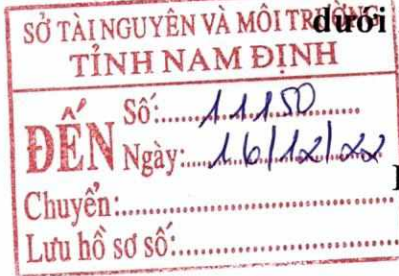 SỞ TÀI NGUYÊN VÀ MÔI TRƯỜNG
dưới
TỈNH NAM ĐỊNH
ĐẾN
Số: 11150
Ngày: 16/12/22
Chuyển:
Lưu hồ sơ số: